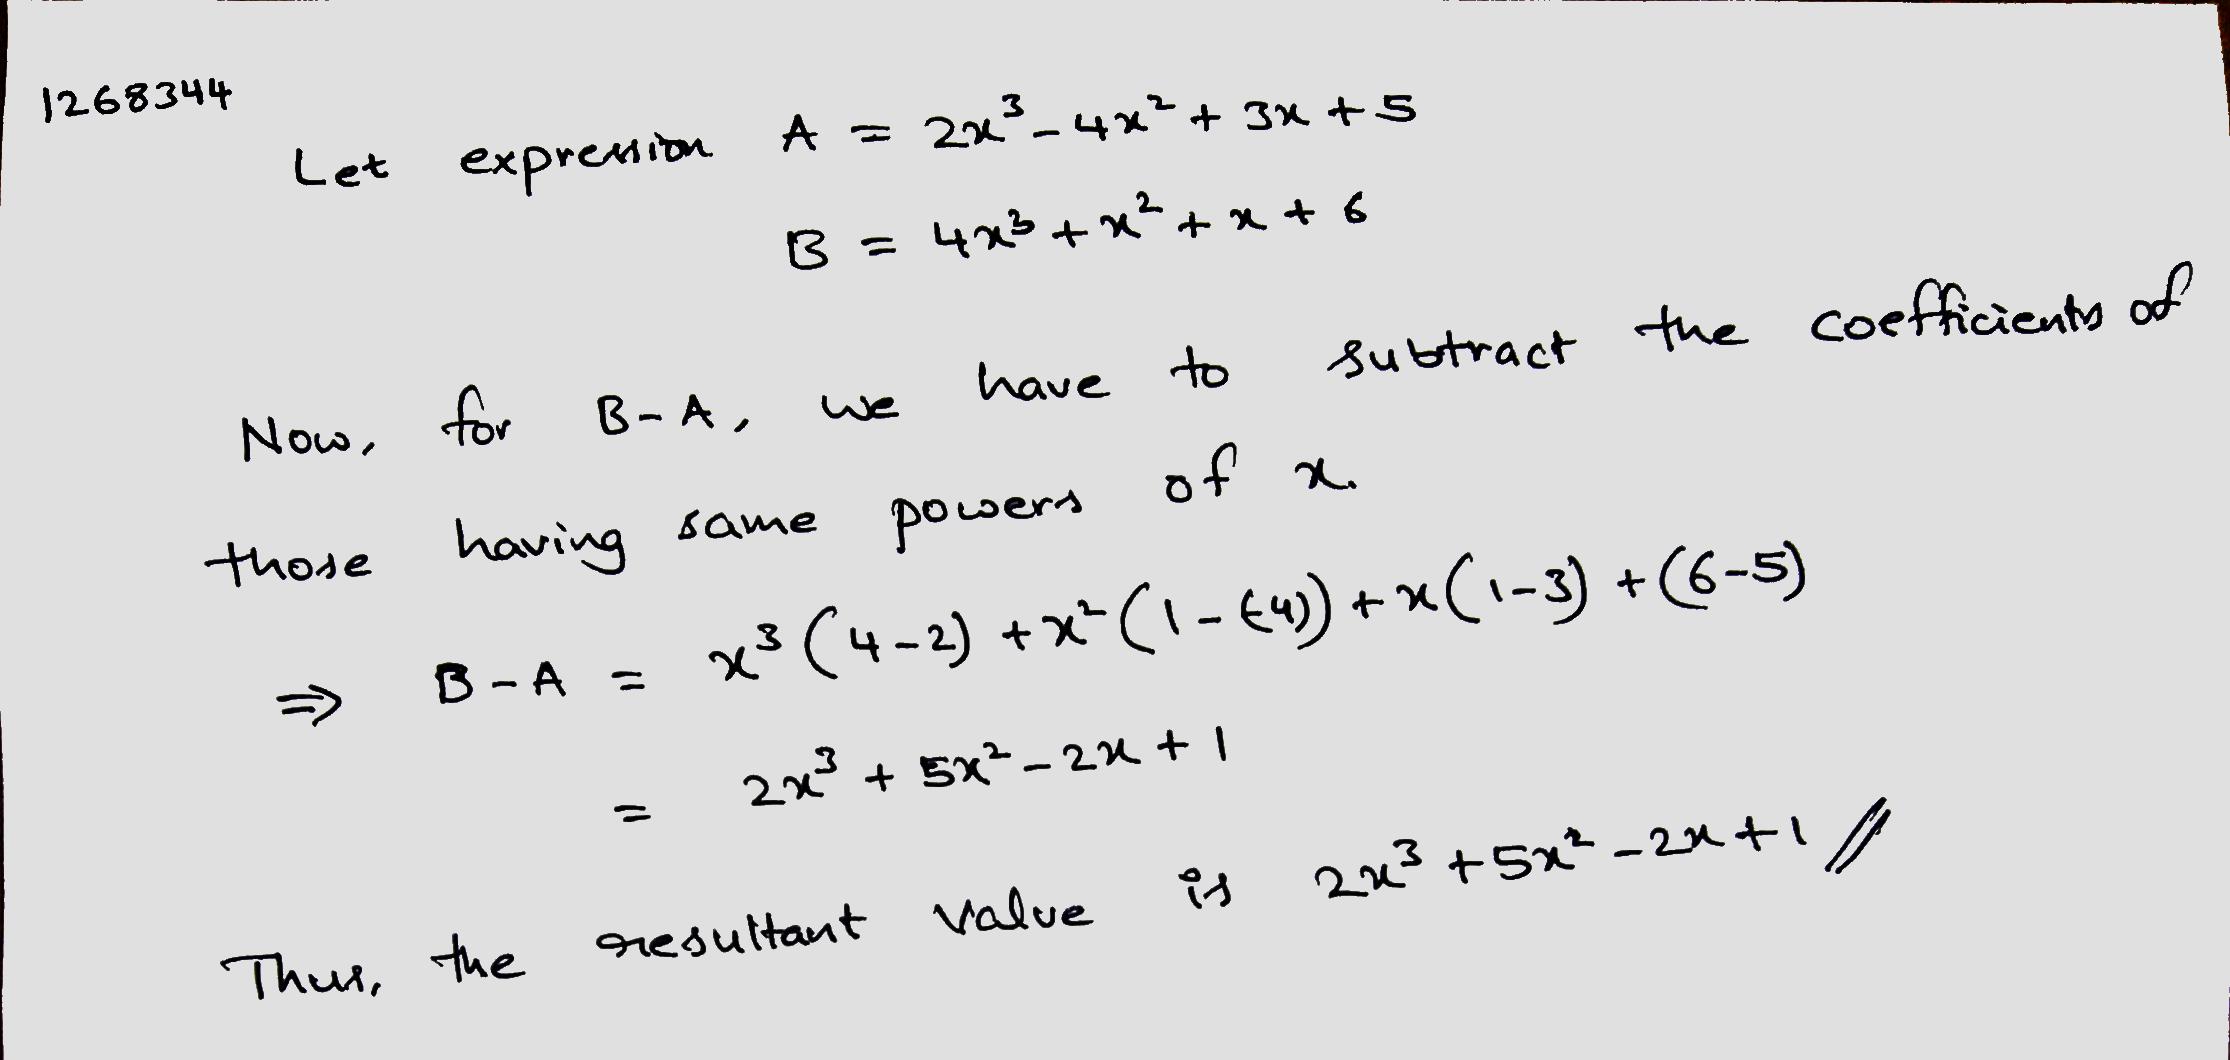 1268344
Let expression A = 2x³ - 4x² + 3x + 5
B = 4x³ + x² + x + 6
Now, for B-A, we have to subtract the coefficients of
those having same powers of x.
⇒ B - A = x³ (4-2) + x² (1-(-4)) + x (1-3) + (6-5)
= 2x³ + 5x² - 2x + 1
Thus, the resultant value is 2x³ + 5x² - 2x + 1 //